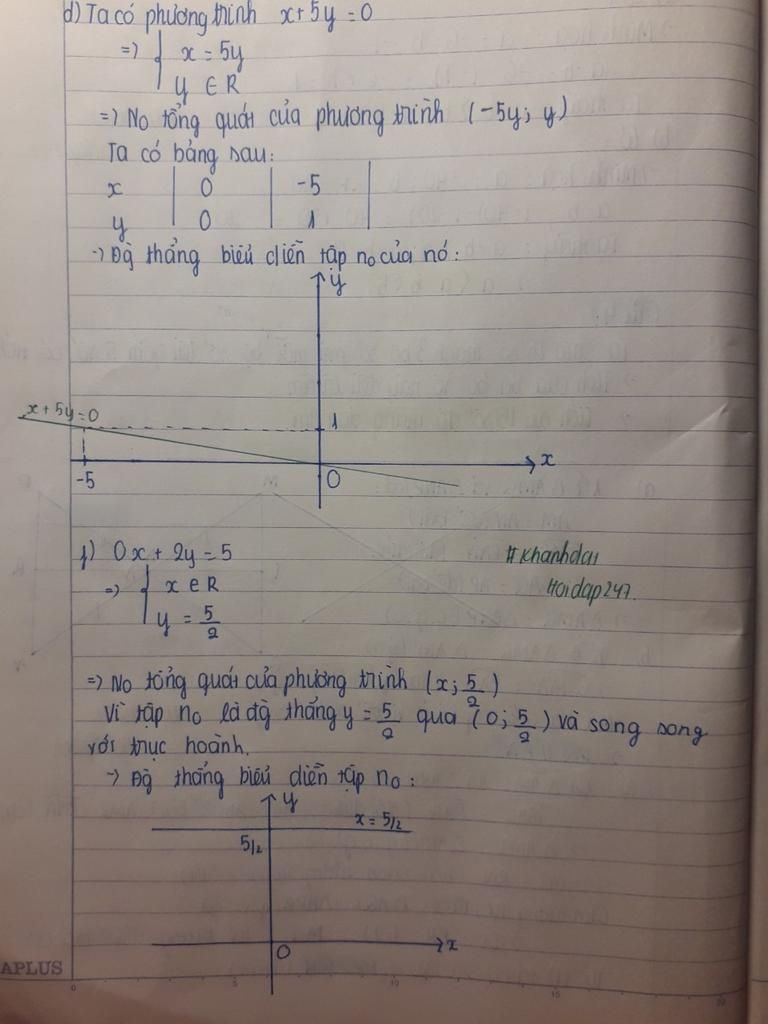 d) Ta có phương trình x + 5y = 0
=> { x = 5y
y ∈ R
=> No tổng quát của phương trình (-5y; y)
Ta có bảng sau:
x | 0 | -5 |
y | 0 | 1 |
-> Đg thẳng biểu diễn tập no của nó:
y
x + 5y = 0
1
x
-5
0
f) 0x + 2y = 5
=> { x ∈ R
y = 5/2
#khanhdai
Hoidap247.
=> No tổng quát của phương trình (x; 5/2)
Vì tập no là đg thẳng y = 5/2 qua (0; 5/2) và song song
với trục hoành.
-> Đg thẳng biểu diễn tập no:
y
x = 5/2
5/2
0
x
APLUS
0 5 10 15 20